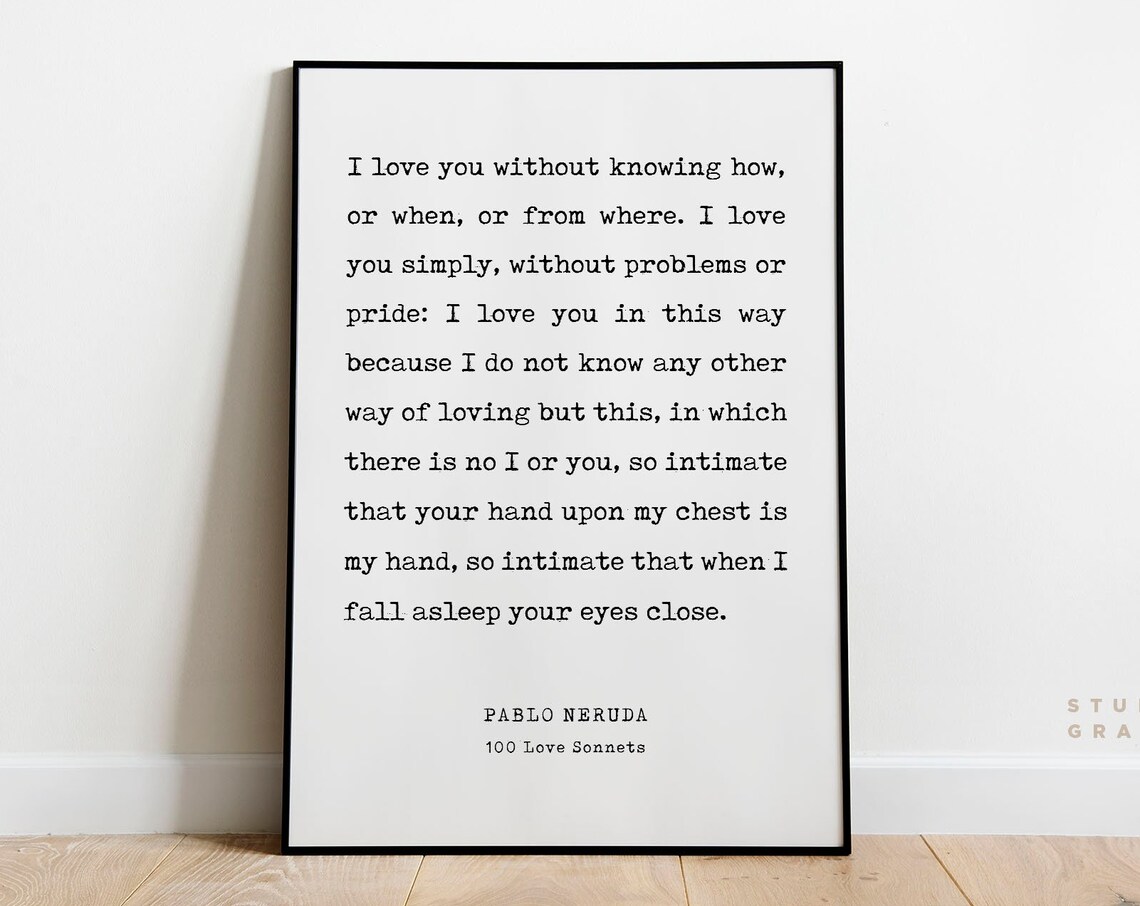 I love you without knowing how,
or when, or from where. I love
you simply, without problems or
pride: I love you in this way
because I do not know any other
way of loving but this, in which
there is no I or you, so intimate
that your hand upon my chest is
my hand, so intimate that when I
fall asleep your eyes close.
PABLO NERUDA
100 Love Sonnets